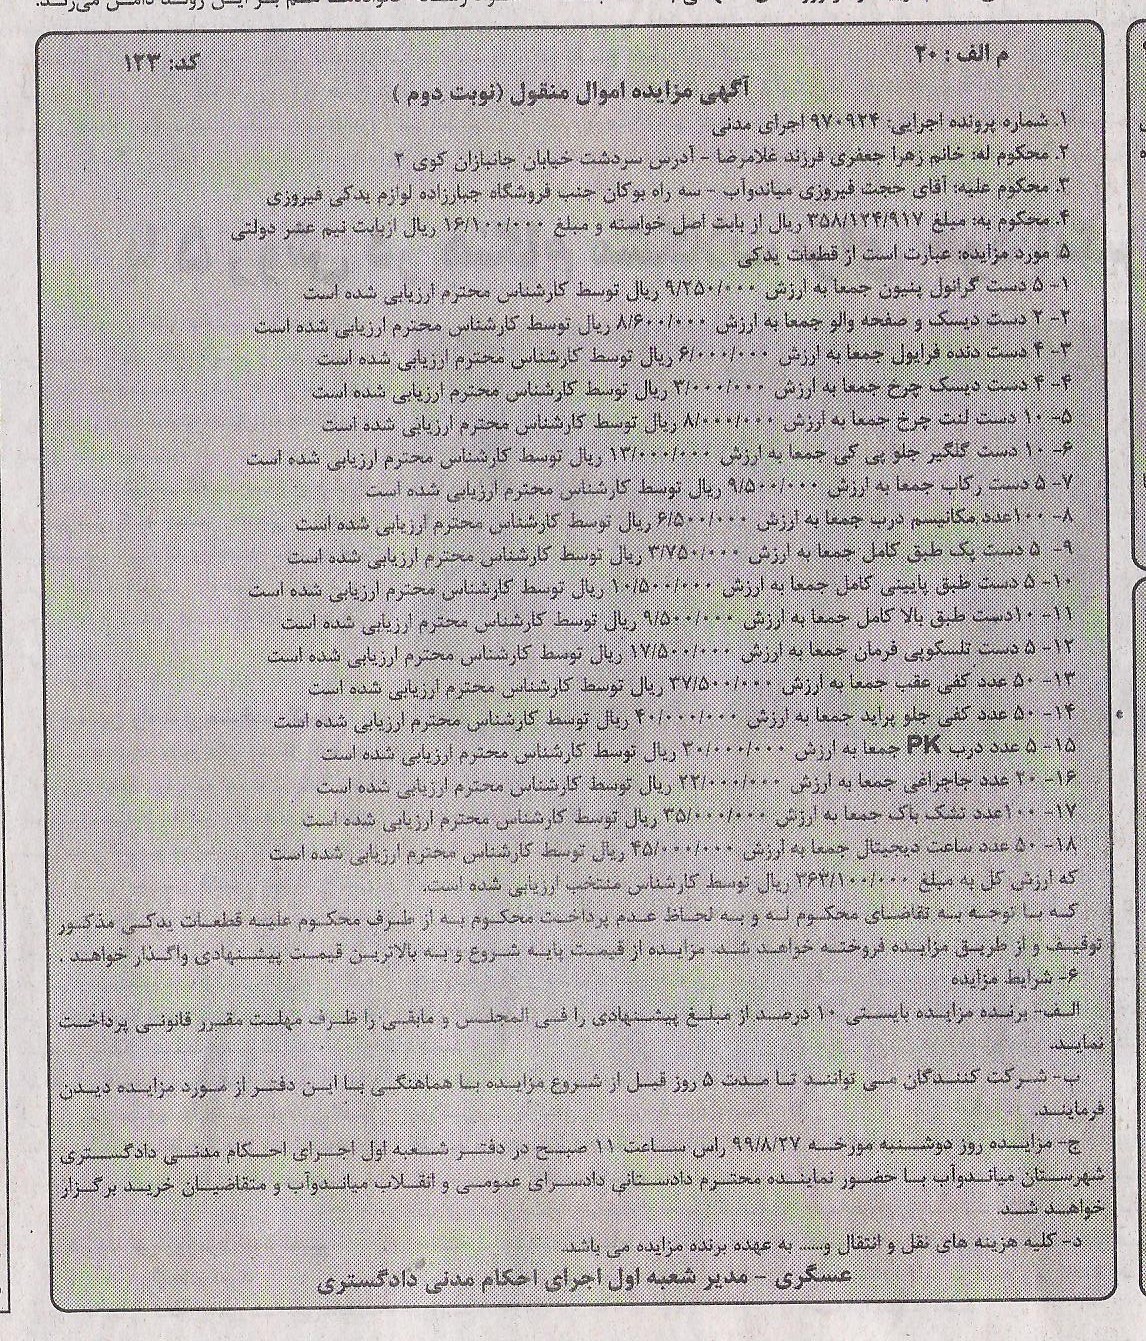 م الف : ۲۰
کد: ۱۲۳
آگهی مزایده اموال منقول (نوبت دوم )
۱. شماره پرونده اجرایی: ۹۷۰۹۲۴ اجرای مدنی
۲. محکوم له: خانم زهرا جعفری فرزند غلامرضا - آدرس سردشت خیابان جانبازان کوی ۲
۳. محکوم علیه: آقای حجت فیروزی میاندوآب - سه راه بوکان جنب فروشگاه جبارزاده لوازم یدکی فیروزی
۴. محکوم به: مبلغ ۳۵۸/۱۲۴/۹۱۷ ریال از بابت اصل خواسته و مبلغ ۱۶/۱۰۰/۰۰۰ ریال ازبابت نیم عشر دولتی
۵. مورد مزایده: عبارت است از قطعات یدکی
۱- ۵ دست گرانول پنیون جمعا به ارزش ۹/۲۵۰/۰۰۰ ریال توسط کارشناس محترم ارزیابی شده است
۲- ۲ دست دیسک و صفحه والو جمعا به ارزش ۸/۶۰۰/۰۰۰ ریال توسط کارشناس محترم ارزیابی شده است
۳- ۴ دست دنده فرابول جمعا به ارزش ۶/۰۰۰/۰۰۰ ریال توسط کارشناس محترم ارزیابی شده است
۴- ۴ دست دیسک چرخ جمعا به ارزش ۳/۰۰۰/۰۰۰ ریال توسط کارشناس محترم ارزیابی شده است
۵- ۱۰ دست لنت چرخ جمعا به ارزش ۸/۰۰۰/۰۰۰ ریال توسط کارشناس محترم ارزیابی شده است
۶- ۱۰ دست گلگیر جلو پی کی جمعا به ارزش ۱۳/۰۰۰/۰۰۰ ریال توسط کارشناس محترم ارزیابی شده است
۷- ۵ دست رکاب جمعا به ارزش ۹/۵۰۰/۰۰۰ ریال توسط کارشناس محترم ارزیابی شده است
۸- ۱۰۰عدد مکانیسم درب جمعا به ارزش ۶/۵۰۰/۰۰۰ ریال توسط کارشناس محترم ارزیابی شده است
۹- ۵ دست پک طبق کامل جمعا به ارزش ۳/۷۵۰/۰۰۰ ریال توسط کارشناس محترم ارزیابی شده است
۱۰- ۵ دست طبق پایینی کامل جمعا به ارزش ۱۰/۵۰۰/۰۰۰ ریال توسط کارشناس محترم ارزیابی شده است
۱۱- ۱۰دست طبق بالا کامل جمعا به ارزش ۹/۵۰۰/۰۰۰ ریال توسط کارشناس محترم ارزیابی شده است
۱۲- ۵ دست تلسکوپی فرمان جمعا به ارزش ۱۷/۵۰۰/۰۰۰ ریال توسط کارشناس محترم ارزیابی شده است
۱۳- ۵۰ عدد کفی عقب جمعا به ارزش ۳۷/۵۰۰/۰۰۰ ریال توسط کارشناس محترم ارزیابی شده است
۱۴- ۵۰ عدد کفی جلو پراید جمعا به ارزش ۴۰/۰۰۰/۰۰۰ ریال توسط کارشناس محترم ارزیابی شده است
۱۵- ۵ عدد درب PK جمعا به ارزش ۳۰/۰۰۰/۰۰۰ ریال توسط کارشناس محترم ارزیابی شده است
۱۶- ۲۰ عدد جاچراغی جمعا به ارزش ۲۲/۰۰۰/۰۰۰ ریال توسط کارشناس محترم ارزیابی شده است
۱۷- ۱۰۰عدد تشک باک جمعا به ارزش ۳۵/۰۰۰/۰۰۰ ریال توسط کارشناس محترم ارزیابی شده است
۱۸- ۵۰ عدد ساعت دیجیتال جمعا به ارزش ۴۵/۰۰۰/۰۰۰ ریال توسط کارشناس محترم ارزیابی شده است
که ارزش کل به مبلغ ۳۶۳/۱۰۰/۰۰۰ ریال توسط کارشناس منتخب ارزیابی شده است.
که با توجه به تقاضای محکوم له و به لحاظ عدم پرداخت محکوم به از طرف محکوم علیه قطعات یدکی مذکور
توقیف و از طریق مزایده فروخته خواهد شد. مزایده از قیمت پایه شروع و به بالاترین قیمت پیشنهادی واگذار خواهد .
۶- شرایط مزایده
الف- برنده مزایده بایستی ۱۰ درصد از مبلغ پیشنهادی را فی المجلس و مابقی را ظرف مهلت مقرر قانونی پرداخت
نماید.
ب- شرکت کنندگان می توانند تا مدت ۵ روز قبل از شروع مزایده با هماهنگی با این دفتر از مورد مزایده دیدن
فرمایند.
ج- مزایده روز دوشنبه مورخه ۹۹/۸/۲۷ راس ساعت ۱۱ صبح در دفتر شعبه اول اجرای احکام مدنی دادگستری
شهرستان میاندوآب با حضور نماینده محترم دادستانی دادسرای عمومی و انقلاب میاندوآب و متقاضیان خرید برگزار
خواهد شد.
د- کلیه هزینه های نقل و انتقال و...... به عهده برنده مزایده می باشد.
عسگری - مدیر شعبه اول اجرای احکام مدنی دادگستری